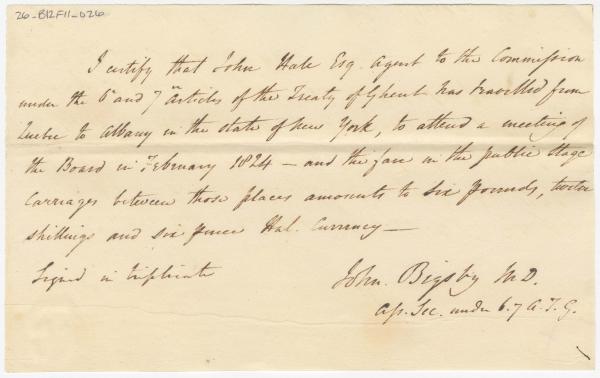 26-B12F11-026
I certify that John Hale Esq. Agent to the Commission
under the 6th and 7th Articles of the Treaty of Ghent has travelled from
Quebec to Albany in the state of New York, to attend a meeting of
the Board in February 1824 — and the fare in the public stage
carriages between those places amounts to six pounds, twelve
shillings and six pence Hal. Currency —
Signed in triplicate
John. Bigsby M.D.
Ass. Sec. under 6. 7 A. T. G.